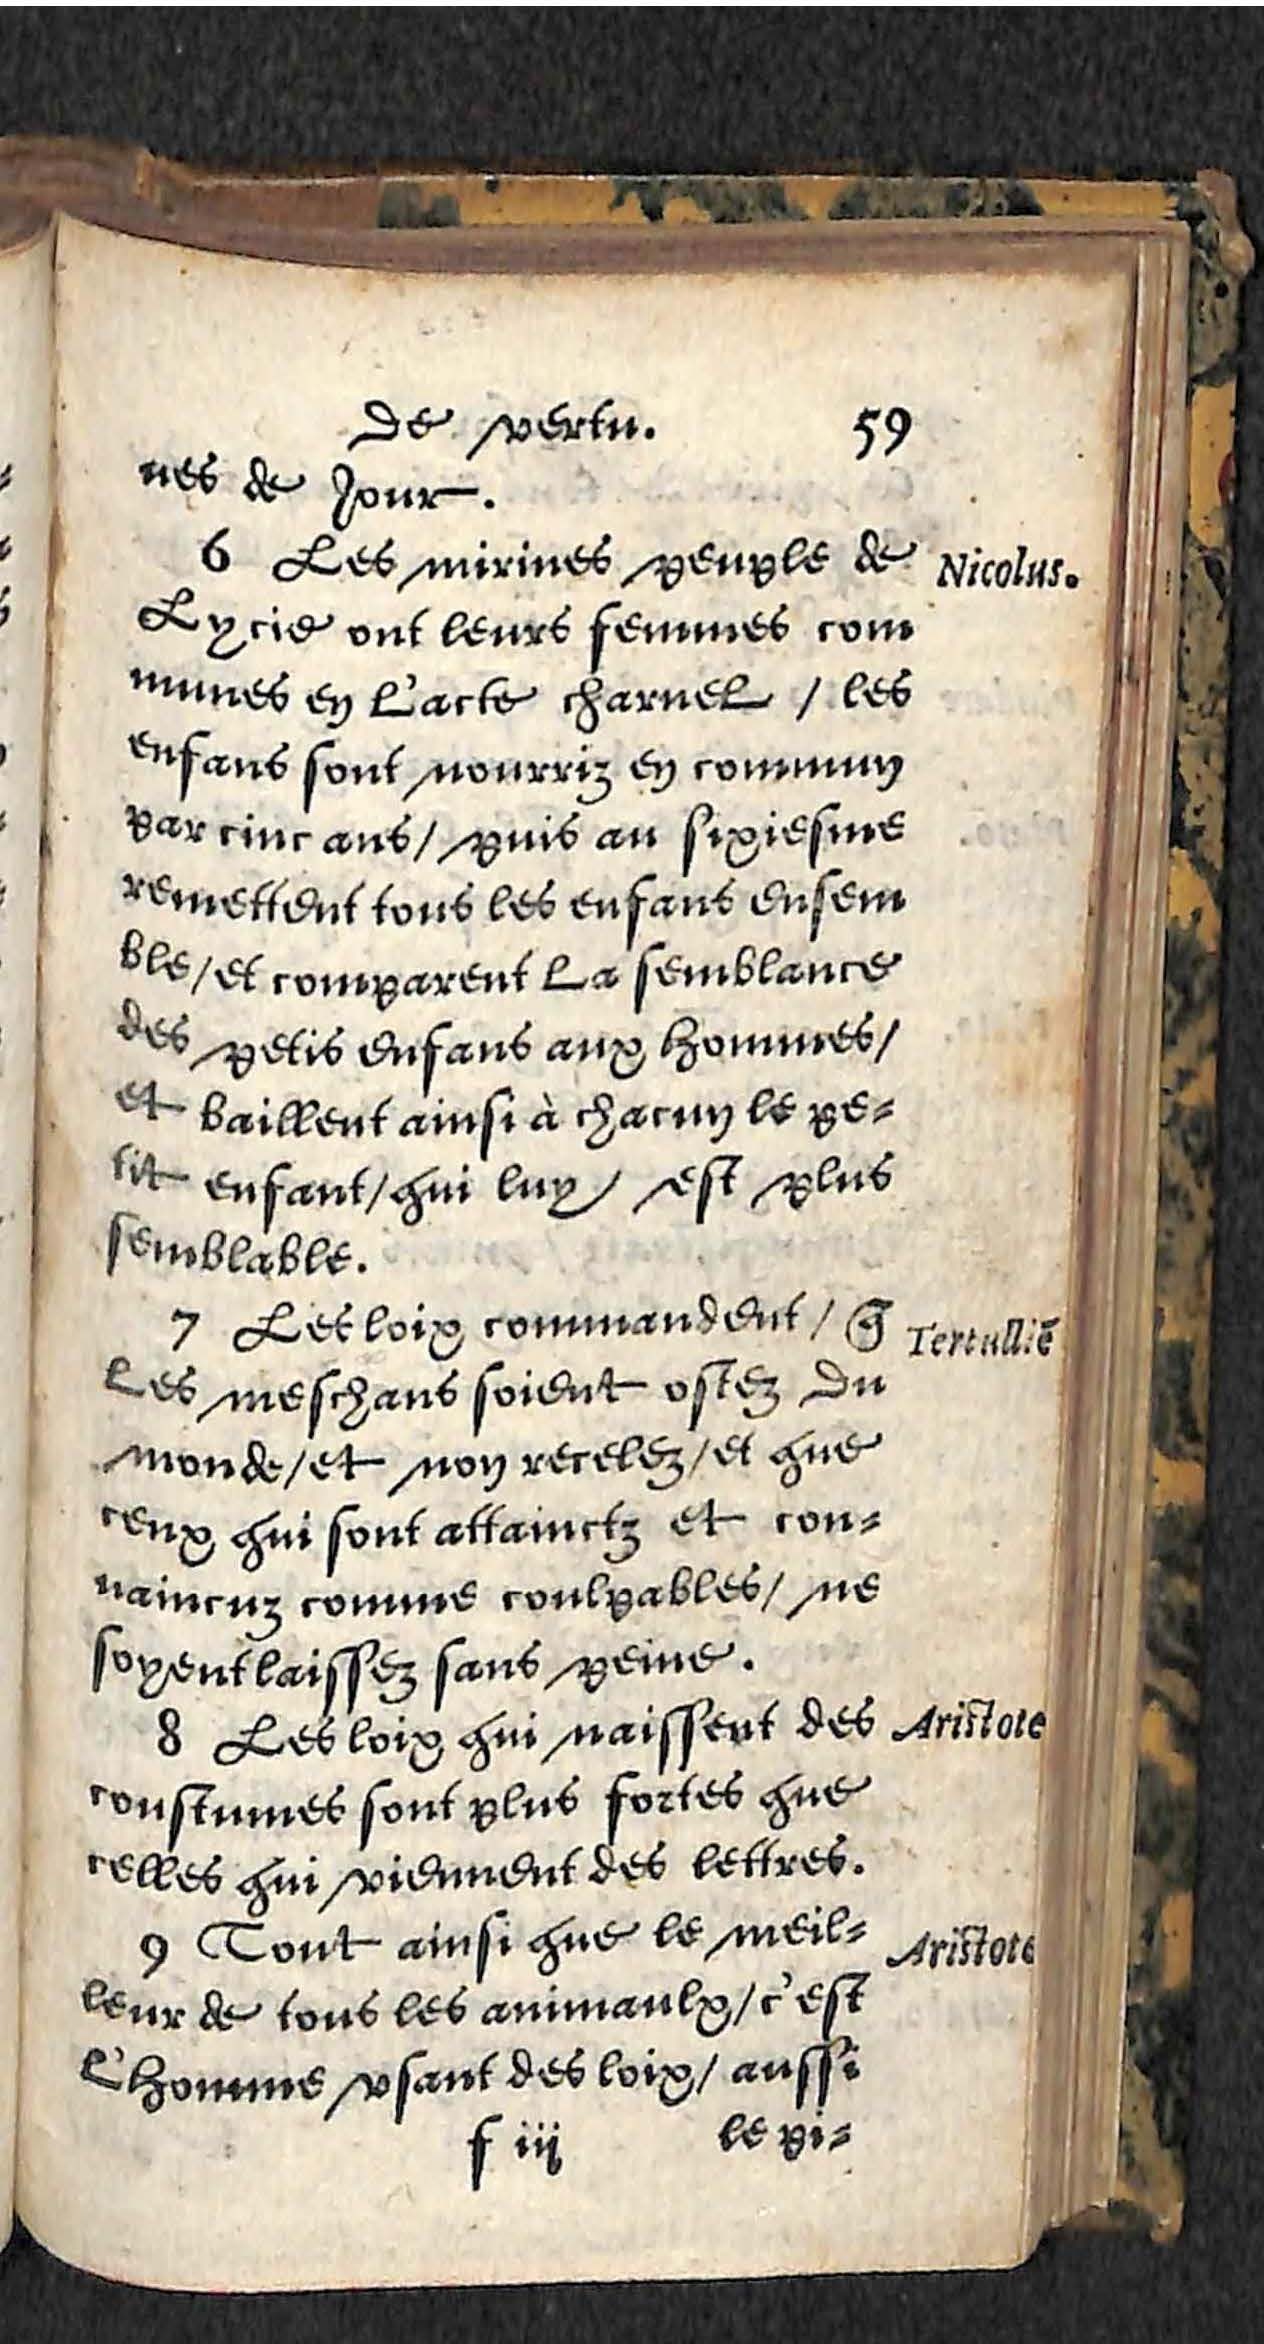 De vertu. 59
nes de Jour.
6 Les mirines peuple de Nicolus.
Lycie ont leurs femmes com
munes en l'acte charnel / les
enfans sont nourriz en commun
par cinc ans / puis au sixiesme
remettent tous les enfans ensem
ble / et comparent la semblance
des petis enfans aux hommes /
et baillent ainsi à chacun le pe-
tit enfant / qui luy est plus
semblable.
7 Les loix commandent / q̃ Tertulliẽ
les meschans soient ostez du
monde / et non recelez / et que
ceux qui sont attainctz et con-
uaincuz comme coulpables / ne
soyent laissez sans peine.
8 Les loix qui naissent des Aristote
coustumes sont plus fortes que
celles qui viennent des lettres.
9 Tout ainsi que le meil- Aristote
leur de tous les animaulx / c'est
l'homme vsant des loix / aussi
f iij le pi-